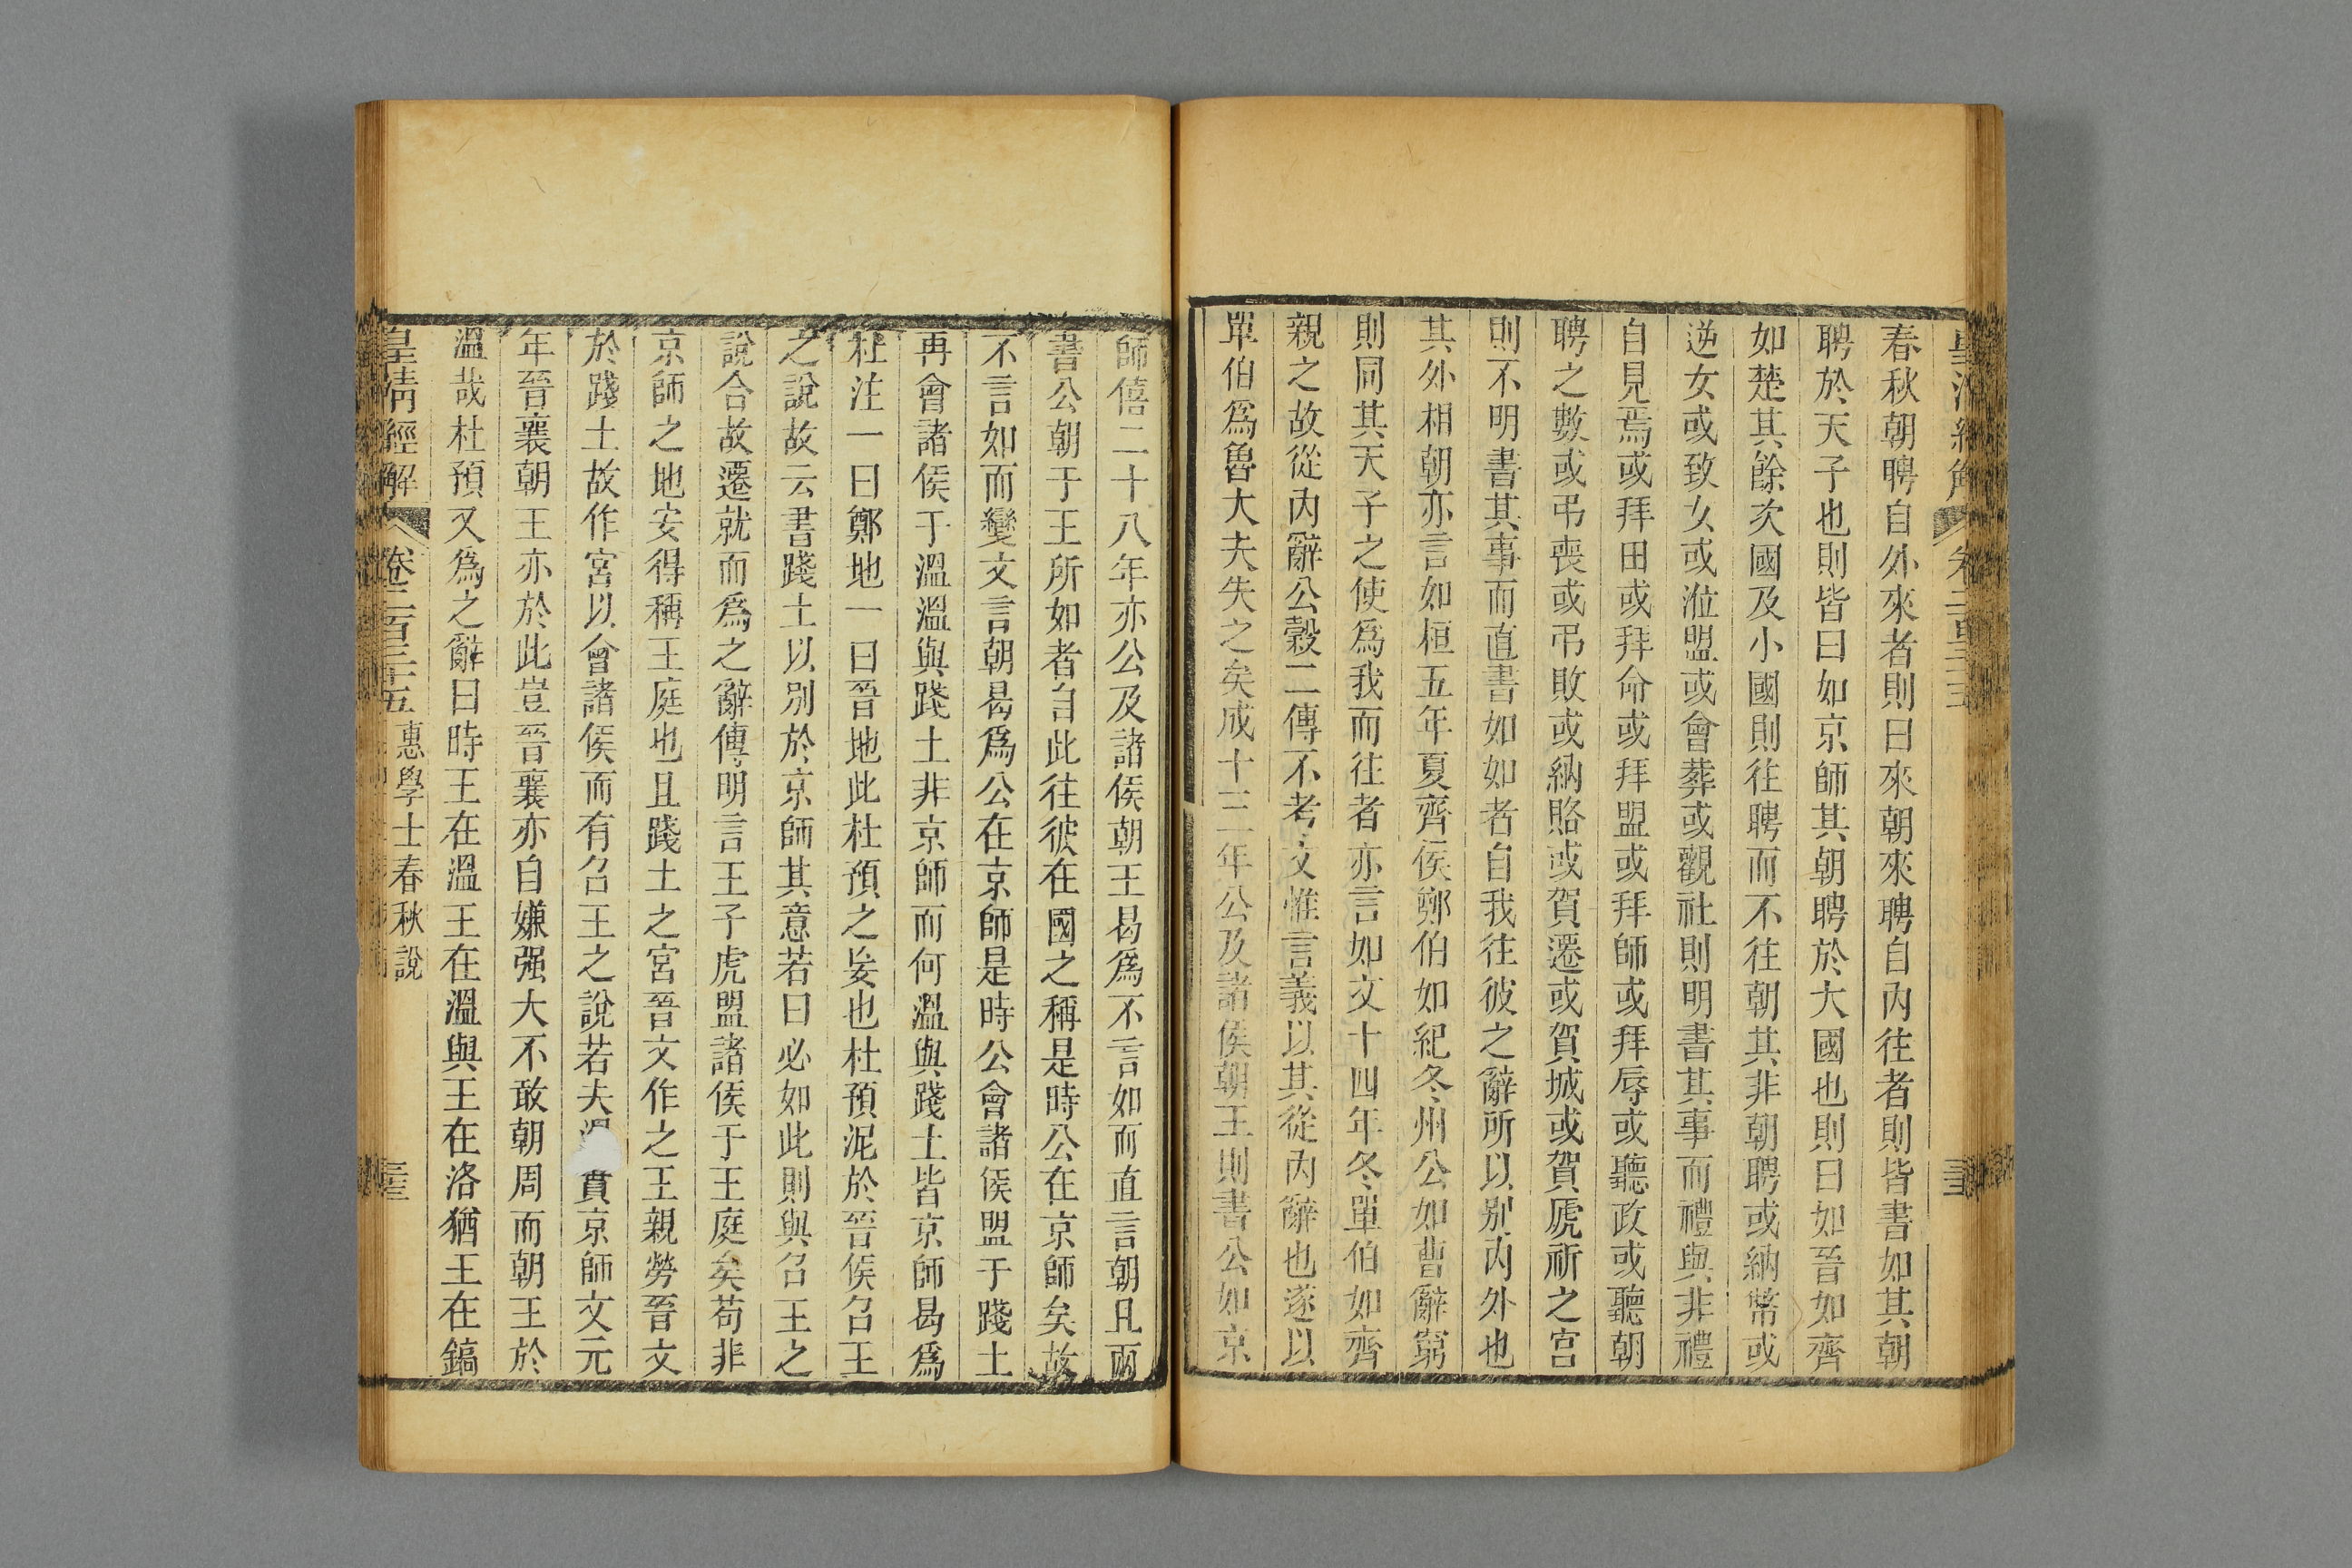 春秋朝聘自外來者則曰來朝來聘自內往者則皆書如其朝
聘於天子也則皆曰如京師其朝聘於大國也則曰如晉如齊
如楚其餘次國及小國則往聘而不往朝其非朝聘或納幣或
逆女或致女或涖盟或會葬或觀社則明書其事而禮與非禮
自見焉或拜田或拜命或拜盟或拜師或拜辱或聽政或聽朝
聘之數或弔喪或弔敗或納賂或賀遷或賀城或賀虒祈之宮
則不明書其事而直書如如者自我往彼之辭所以別內外也
其外相朝亦言如桓五年夏齊侯鄭伯如紀冬州公如曹辭窮
則同其天子之使為我而往者亦言如文十四年冬單伯如齊
親之故從內辭公穀二傳不考文惟言義以其從內辭也遂以
單伯為魯大夫失之矣成十三年公及諸侯朝王則書公如京
師僖二十八年亦公及諸侯朝王曷為不言如而直言朝且兩
書公朝于王所如者自此往彼在國之稱是時公在京師矣故
不言如而變文言朝曷為公在京師是時公會諸侯盟于踐土
再會諸侯于溫溫與踐土非京師而何溫與踐土皆京師曷為
杜注一曰鄭地一曰晉地此杜預之妄也杜預泥於晉侯召王
之說故云書踐土以別於京師其意若曰必如此則與召王之
說合故遷就而為之辭傳明言王子虎盟諸侯于王庭矣苟非
京師之地安得稱王庭也且踐土之宮晉文作之王親勞晉文
於踐土故作宮以會諸侯而有召王之說若夫溫實京師文元
年晉襄朝王亦於此豈晉襄亦自嫌强大不敢朝周而朝王於
溫哉杜預又為之辭曰時王在溫王在溫與王在洛猶王在鎬
皇清經解 卷二百三十五 惠學士春秋說